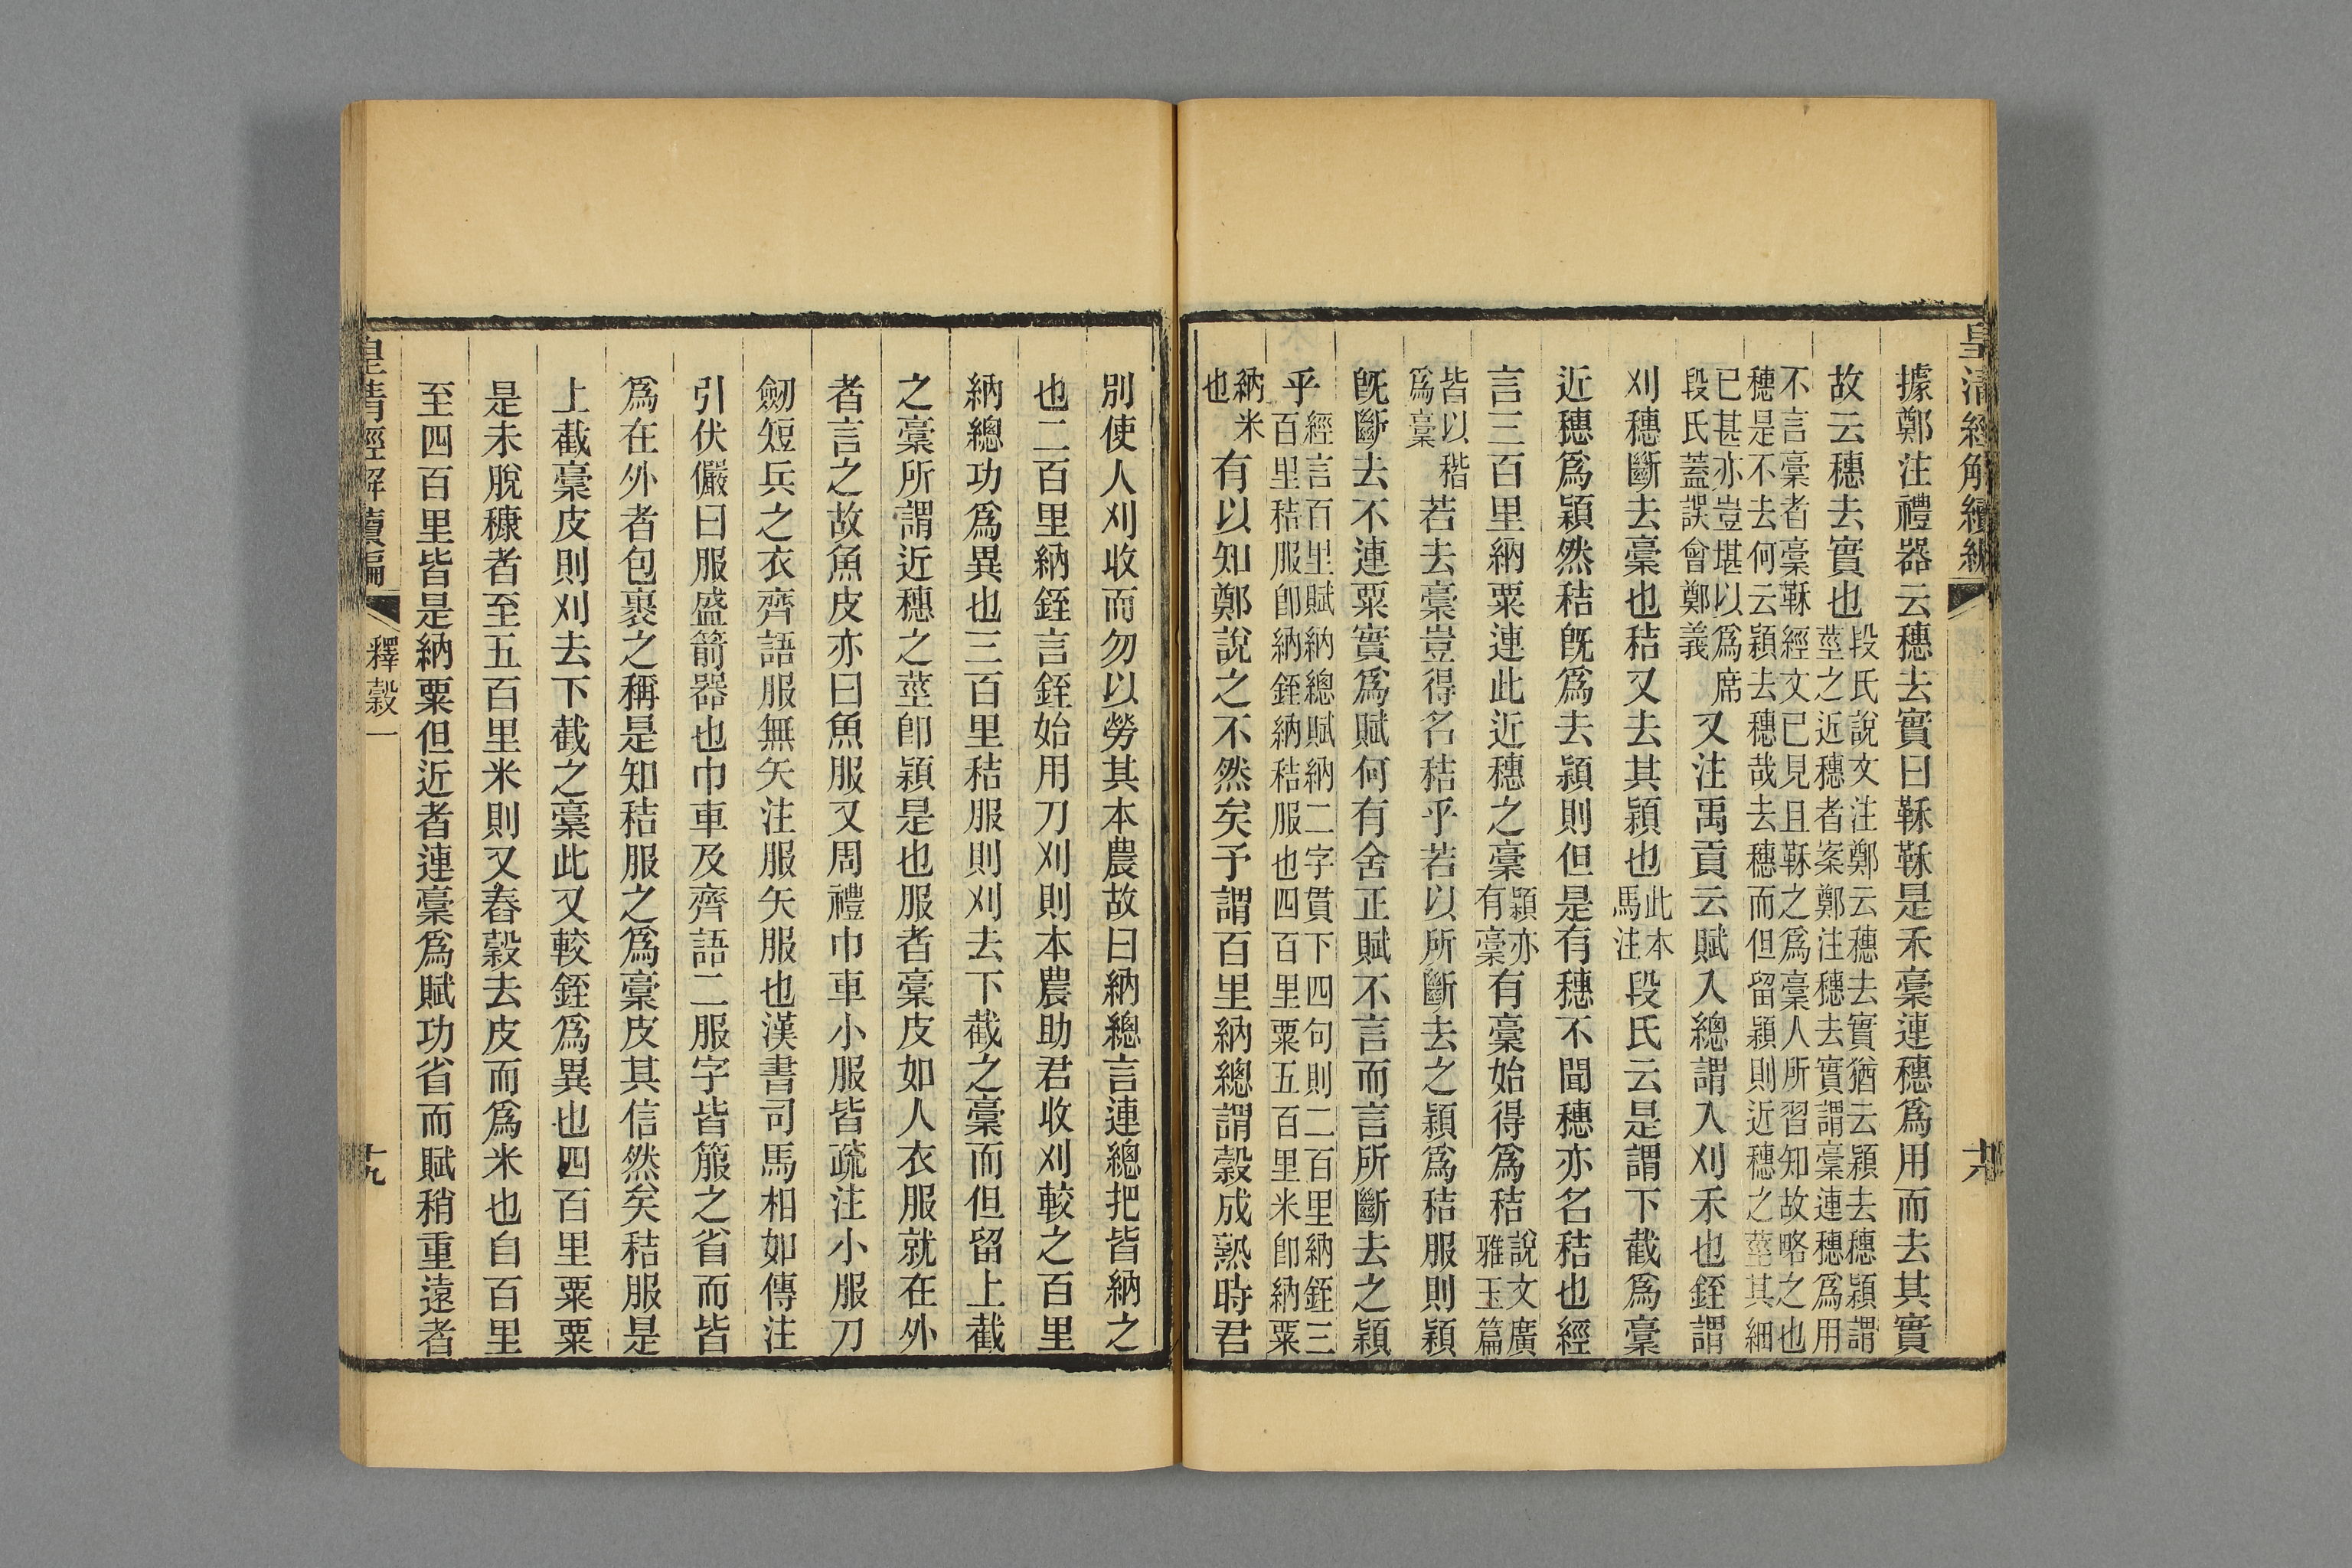 皇清經解續編
十八
據鄭注禮器云穗去實曰鞂鞂是禾稾連穗爲用而去其實
故云穗去實也
段氏說文注鄭云穗去實猶云穎去穗穎謂
莖之近穗者案鄭注穗去實謂稾連穗爲用
不言稾者稾鞂經文已見且鞂之爲稾人所習知故略之也
穗是不去何云穎去穗哉去穗而但留穎則近穗之莖其細
已甚亦豈堪以爲席
段氏蓋誤會鄭義
又注禹貢云賦入總謂入刈禾也銍謂
刈穗斷去稾也秸又去其穎也
此本
馬注
段氏云是謂下截爲稾
近穗爲穎然秸旣爲去穎則但是有穗不聞穗亦名秸也經
言三百里納粟連此近穗之稾
穎亦
有稾
有稾始得爲秸
說文廣
雅玉篇
皆以稭
爲稾
若去稾豈得名秸乎若以所斷去之穎爲秸服則穎
旣斷去不連粟實爲賦何有舍正賦不言而言所斷去之穎
乎
經言百里賦納總賦納二字貫下四句則二百里納銍三
百里秸服卽納銍納秸服也四百里粟五百里米卽納粟
納米
也
有以知鄭說之不然矣予謂百里納總謂穀成熟時君
別使人刈收而勿以勞其本農故曰納總言連總把皆納之
也二百里納銍言銍始用刀刈則本農助君收刈較之百里
納總功爲異也三百里秸服則刈去下截之稾而但留上截
之稾所謂近穗之莖卽穎是也服者稾皮如人衣服就在外
者言之故魚皮亦曰魚服又周禮巾車小服皆疏注小服刀
劒短兵之衣齊語服無矢注服矢服也漢書司馬相如傳注
引伏儼曰服盛箭器也巾車及齊語二服字皆箙之省而皆
爲在外者包裹之稱是知秸服之爲稾皮其信然矣秸服是
上截稾皮則刈去下截之稾此又較銍爲異也四百里粟粟
是未脫穅者至五百里米則又舂穀去皮而爲米也自百里
至四百里皆是納粟但近者連稾爲賦功省而賦稍重遠者
皇清經解續編
釋穀一
十九